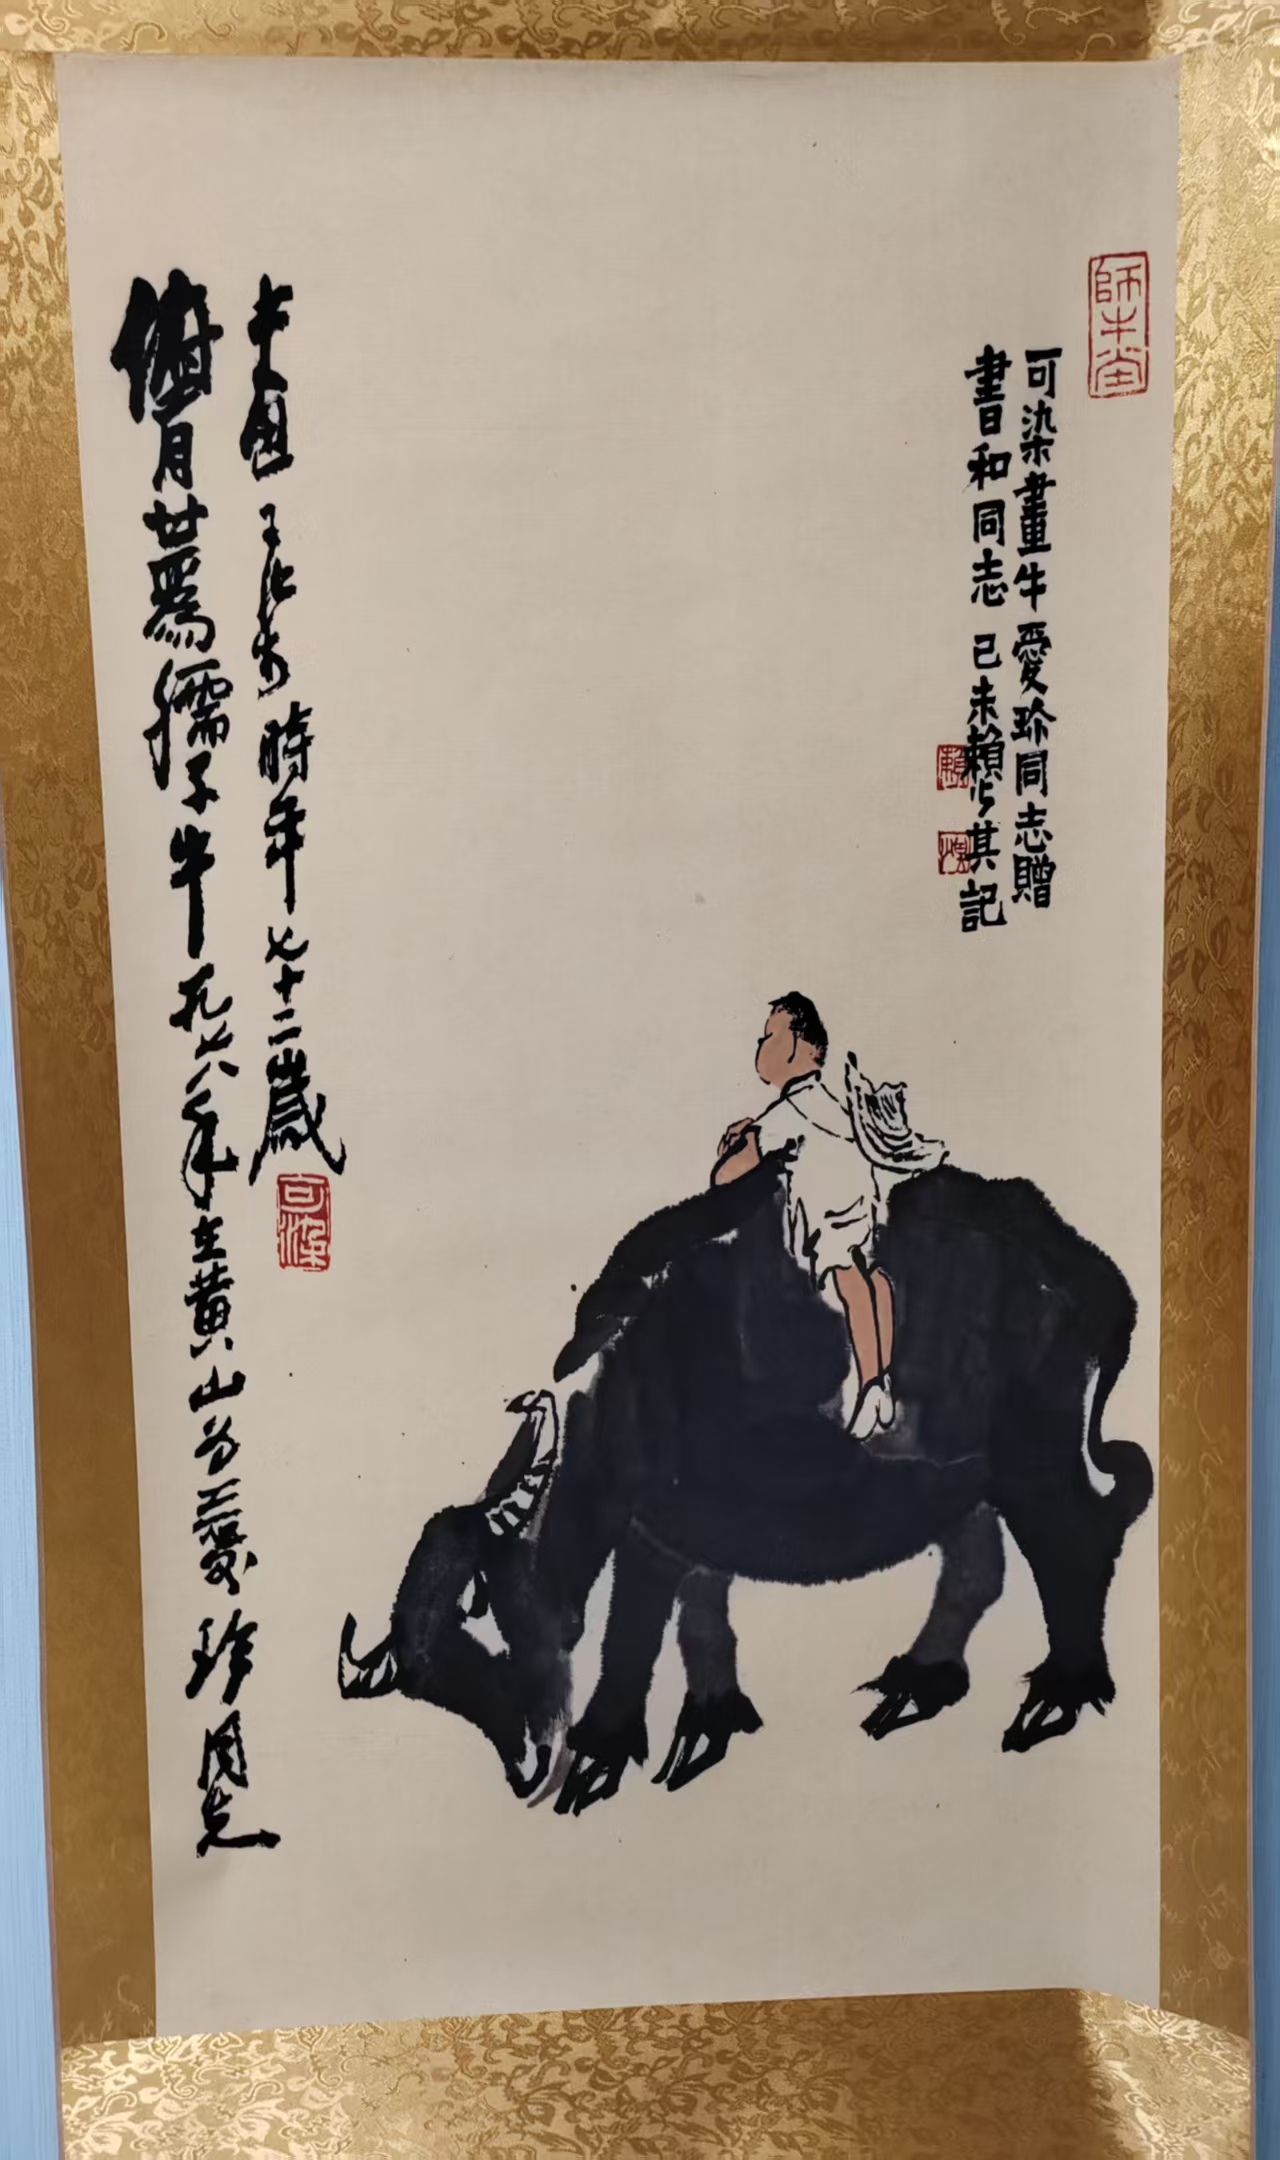 師牛堂
可染畫牛愛珍同志贈
書和同志 己未賴少其記
賴
俯首甘爲孺子牛 一九七八年在黄山爲愛珍同志
時年七十二歲
可染